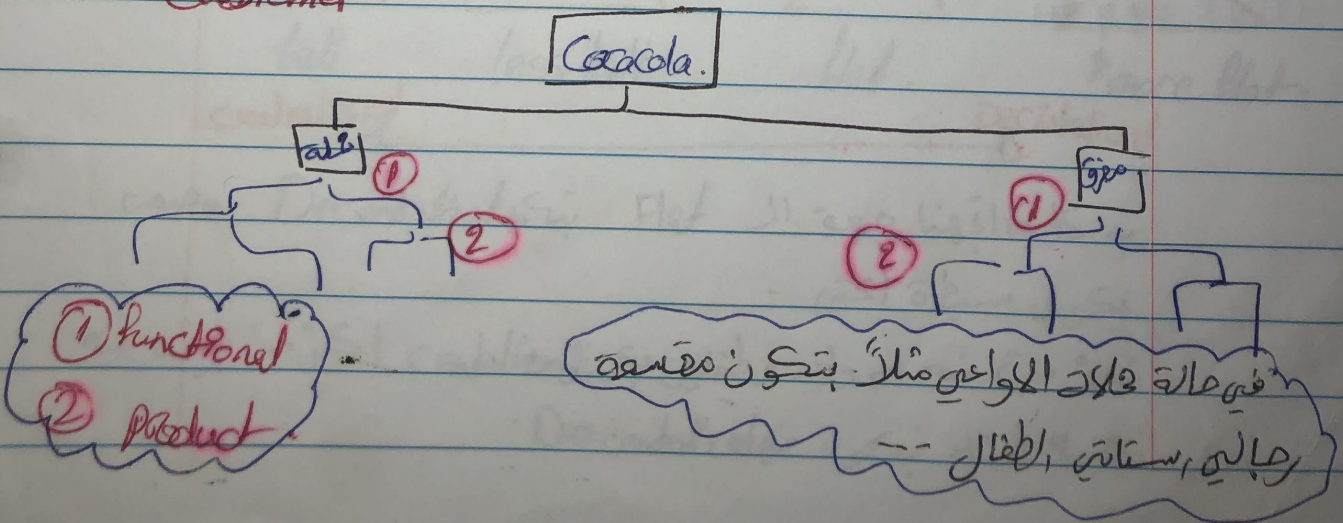 Cocacola.
غزة
① ①
② ②
① functional
② product.
في حالة محلات الاواعي مثلاً بتكون مقسمة
رجالي, ستاتي, اطفال ---